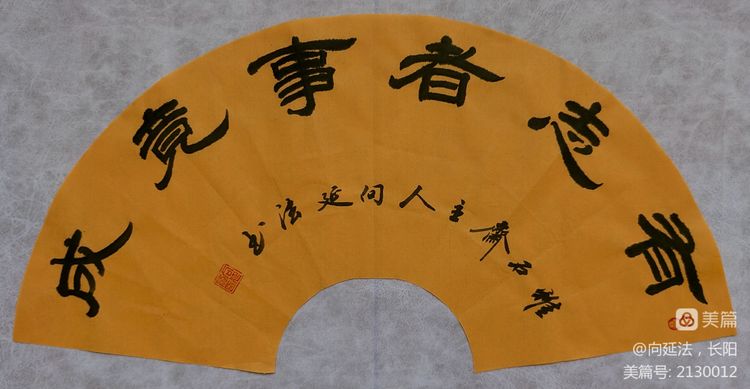 有志者事竟成
雅石斋主人向延法书
美篇
@向延法,长阳
美篇号: 2130012